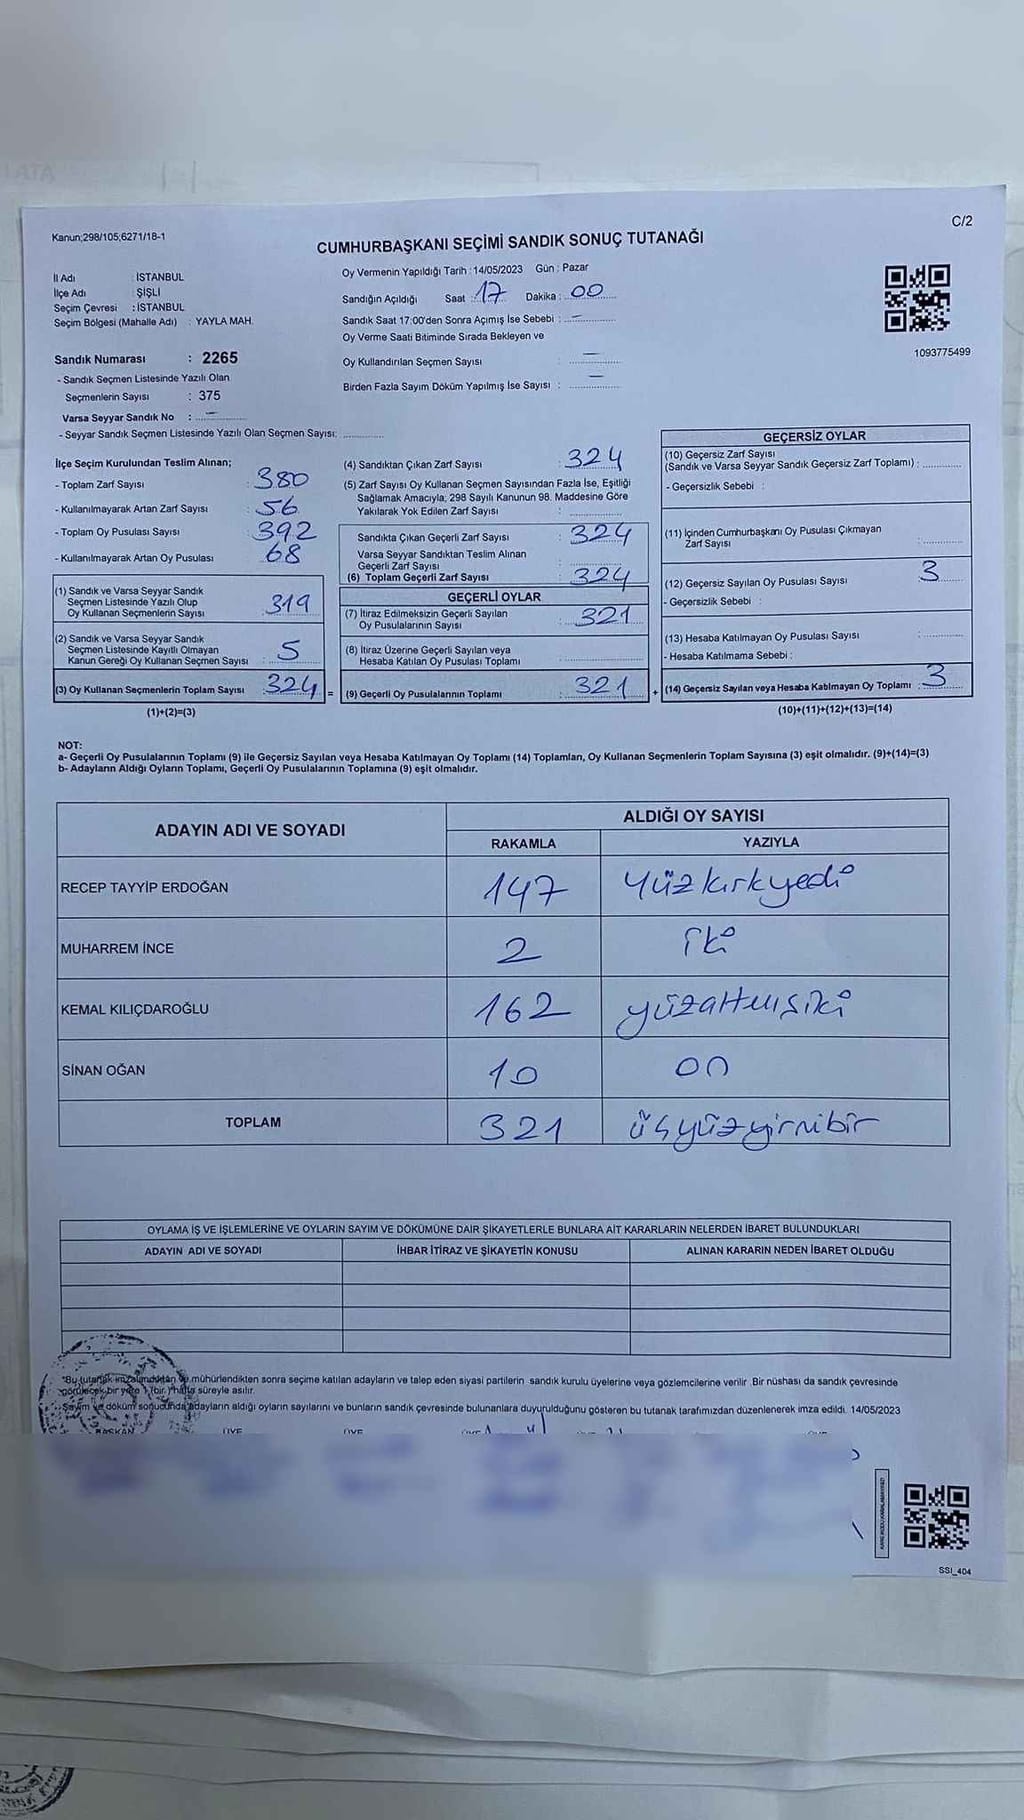 Kanun;298/105;6271/18-1
C/2
CUMHURBAŞKANI SEÇİMİ SANDIK SONUÇ TUTANAĞI
İl Adı : İSTANBUL
İlçe Adı : ŞİŞLİ
Seçim Çevresi : İSTANBUL
Seçim Bölgesi (Mahalle Adı) : YAYLA MAH.
Oy Vermenin Yapıldığı Tarih : 14/05/2023 Gün : Pazar
Sandığın Açıldığı Saat : 17 Dakika : 00
Sandık Saat 17:00'den Sonra Açımış İse Sebebi : –
Oy Verme Saati Bitiminde Sırada Bekleyen ve
Oy Kullandırılan Seçmen Sayısı : –
Birden Fazla Sayım Döküm Yapılmış İse Sayısı : –
1093775499
Sandık Numarası : 2265
- Sandık Seçmen Listesinde Yazılı Olan
Seçmenlerin Sayısı : 375
Varsa Seyyar Sandık No : –
- Seyyar Sandık Seçmen Listesinde Yazılı Olan Seçmen Sayısı:
İlçe Seçim Kurulundan Teslim Alınan;
- Toplam Zarf Sayısı : 380
- Kullanılmayarak Artan Zarf Sayısı : 56
- Toplam Oy Pusulası Sayısı : 392
- Kullanılmayarak Artan Oy Pusulası : 68
(1) Sandık ve Varsa Seyyar Sandık
Seçmen Listesinde Yazılı Olup
Oy Kullanan Seçmenlerin Sayısı : 319
(2) Sandık ve Varsa Seyyar Sandık
Seçmen Listesinde Kayıtlı Olmayan
Kanun Gereği Oy Kullanan Seçmen Sayısı : 5
(3) Oy Kullanan Seçmenlerin Toplam Sayısı : 324 =
(1)+(2)=(3)
(4) Sandıktan Çıkan Zarf Sayısı : 324
(5) Zarf Sayısı Oy Kullanan Seçmen Sayısından Fazla İse, Eşitliği
Sağlamak Amacıyla; 298 Sayılı Kanunun 98. Maddesine Göre
Yakılarak Yok Edilen Zarf Sayısı :
Sandıkta Çıkan Geçerli Zarf Sayısı : 324
Varsa Seyyar Sandıktan Teslim Alınan
Geçerli Zarf Sayısı :
(6) Toplam Geçerli Zarf Sayısı : 324
GEÇERLİ OYLAR
(7) İtiraz Edilmeksizin Geçerli Sayılan
Oy Pusulalarının Sayısı : 321
(8) İtiraz Üzerine Geçerli Sayılan veya
Hesaba Katılan Oy Pusulası Toplamı :
(9) Geçerli Oy Pusulalarının Toplamı : 321 +
GEÇERSİZ OYLAR
(10) Geçersiz Zarf Sayısı
(Sandık ve Varsa Seyyar Sandık Geçersiz Zarf Toplamı) :
- Geçersizlik Sebebi :
(11) İçinden Cumhurbaşkanı Oy Pusulası Çıkmayan
Zarf Sayısı :
(12) Geçersiz Sayılan Oy Pusulası Sayısı : 3
- Geçersizlik Sebebi :
(13) Hesaba Katılmayan Oy Pusulası Sayısı :
- Hesaba Katılmama Sebebi :
(14) Geçersiz Sayılan veya Hesaba Katılmayan Oy Toplamı : 3
(10)+(11)+(12)+(13)=(14)
NOT:
a- Geçerli Oy Pusulalarının Toplamı (9) ile Geçersiz Sayılan veya Hesaba Katılmayan Oy Toplamı (14) Toplamları, Oy Kullanan Seçmenlerin Toplam Sayısına (3) eşit olmalıdır. (9)+(14)=(3)
b- Adayların Aldığı Oyların Toplamı, Geçerli Oy Pusulalarının Toplamına (9) eşit olmalıdır.
ADAYIN ADI VE SOYADI
ALDIĞI OY SAYISI
RAKAMLA YAZIYLA
RECEP TAYYİP ERDOĞAN 147 Yüzkırkyedi
MUHARREM İNCE 2 iki
KEMAL KILIÇDAROĞLU 162 yüzaltmışiki
SİNAN OĞAN 10 on
TOPLAM 321 üçyüzyirmibir
OYLAMA İŞ VE İŞLEMLERİNE VE OYLARIN SAYIM VE DÖKÜMÜNE DAİR ŞİKAYETLERLE BUNLARA AİT KARARLARIN NELERDEN İBARET BULUNDUKLARI
ADAYIN ADI VE SOYADI İHBAR İTİRAZ VE ŞİKAYETİN KONUSU ALINAN KARARIN NEDEN İBARET OLDUĞU
"Bu tutanak imzalandıktan ve mühürlendikten sonra seçime katılan adayların ve talep eden siyasi partilerin sandık kurulu üyelerine veya gözlemcilerine verilir. Bir nüshası da sandık çevresinde
görülecek bir yere 1 (bir) hafta süreyle asılır.
Sayım ve döküm sonucunda adayların aldığı oyların sayılarını ve bunların sandık çevresinde bulunanlara duyurulduğunu gösteren bu tutanak tarafımızdan düzenlenerek imza edildi. 14/05/2023
BAŞKAN ÜYE ÜYE
SSI_404